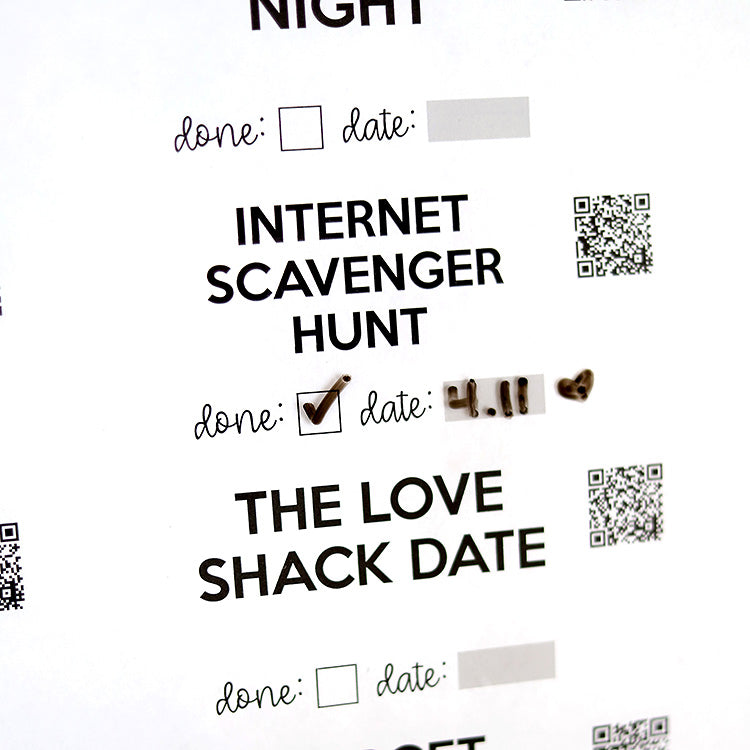 NIGHT
done: date:
INTERNET
SCAVENGER
HUNT
done: date: 4.11
THE LOVE
SHACK DATE
done: date: